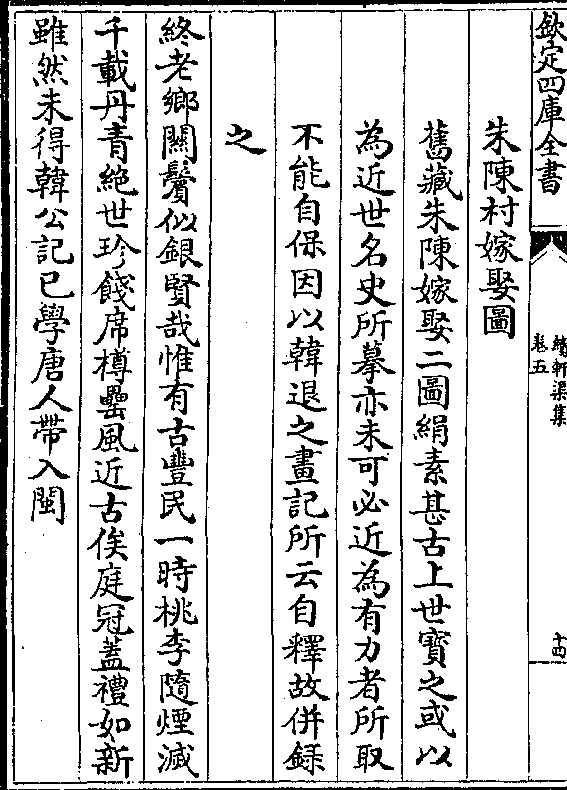 欽定四庫全書
續軒渠集
卷五
十四
朱陳村嫁娶圖
舊藏朱陳嫁娶二圖絹素甚古上世寳之或以
為近世名史所摹亦未可必近為有力者所取
不能自保因以韓退之畫記所云自釋故併録
之
終老鄉關鬢似銀賢哉惟有古豐民一時桃李隨煙滅
千載丹青絶世珍餞席樽罍風近古俟庭冠蓋禮如新
雖然未得韓公記已學唐人帶入閩